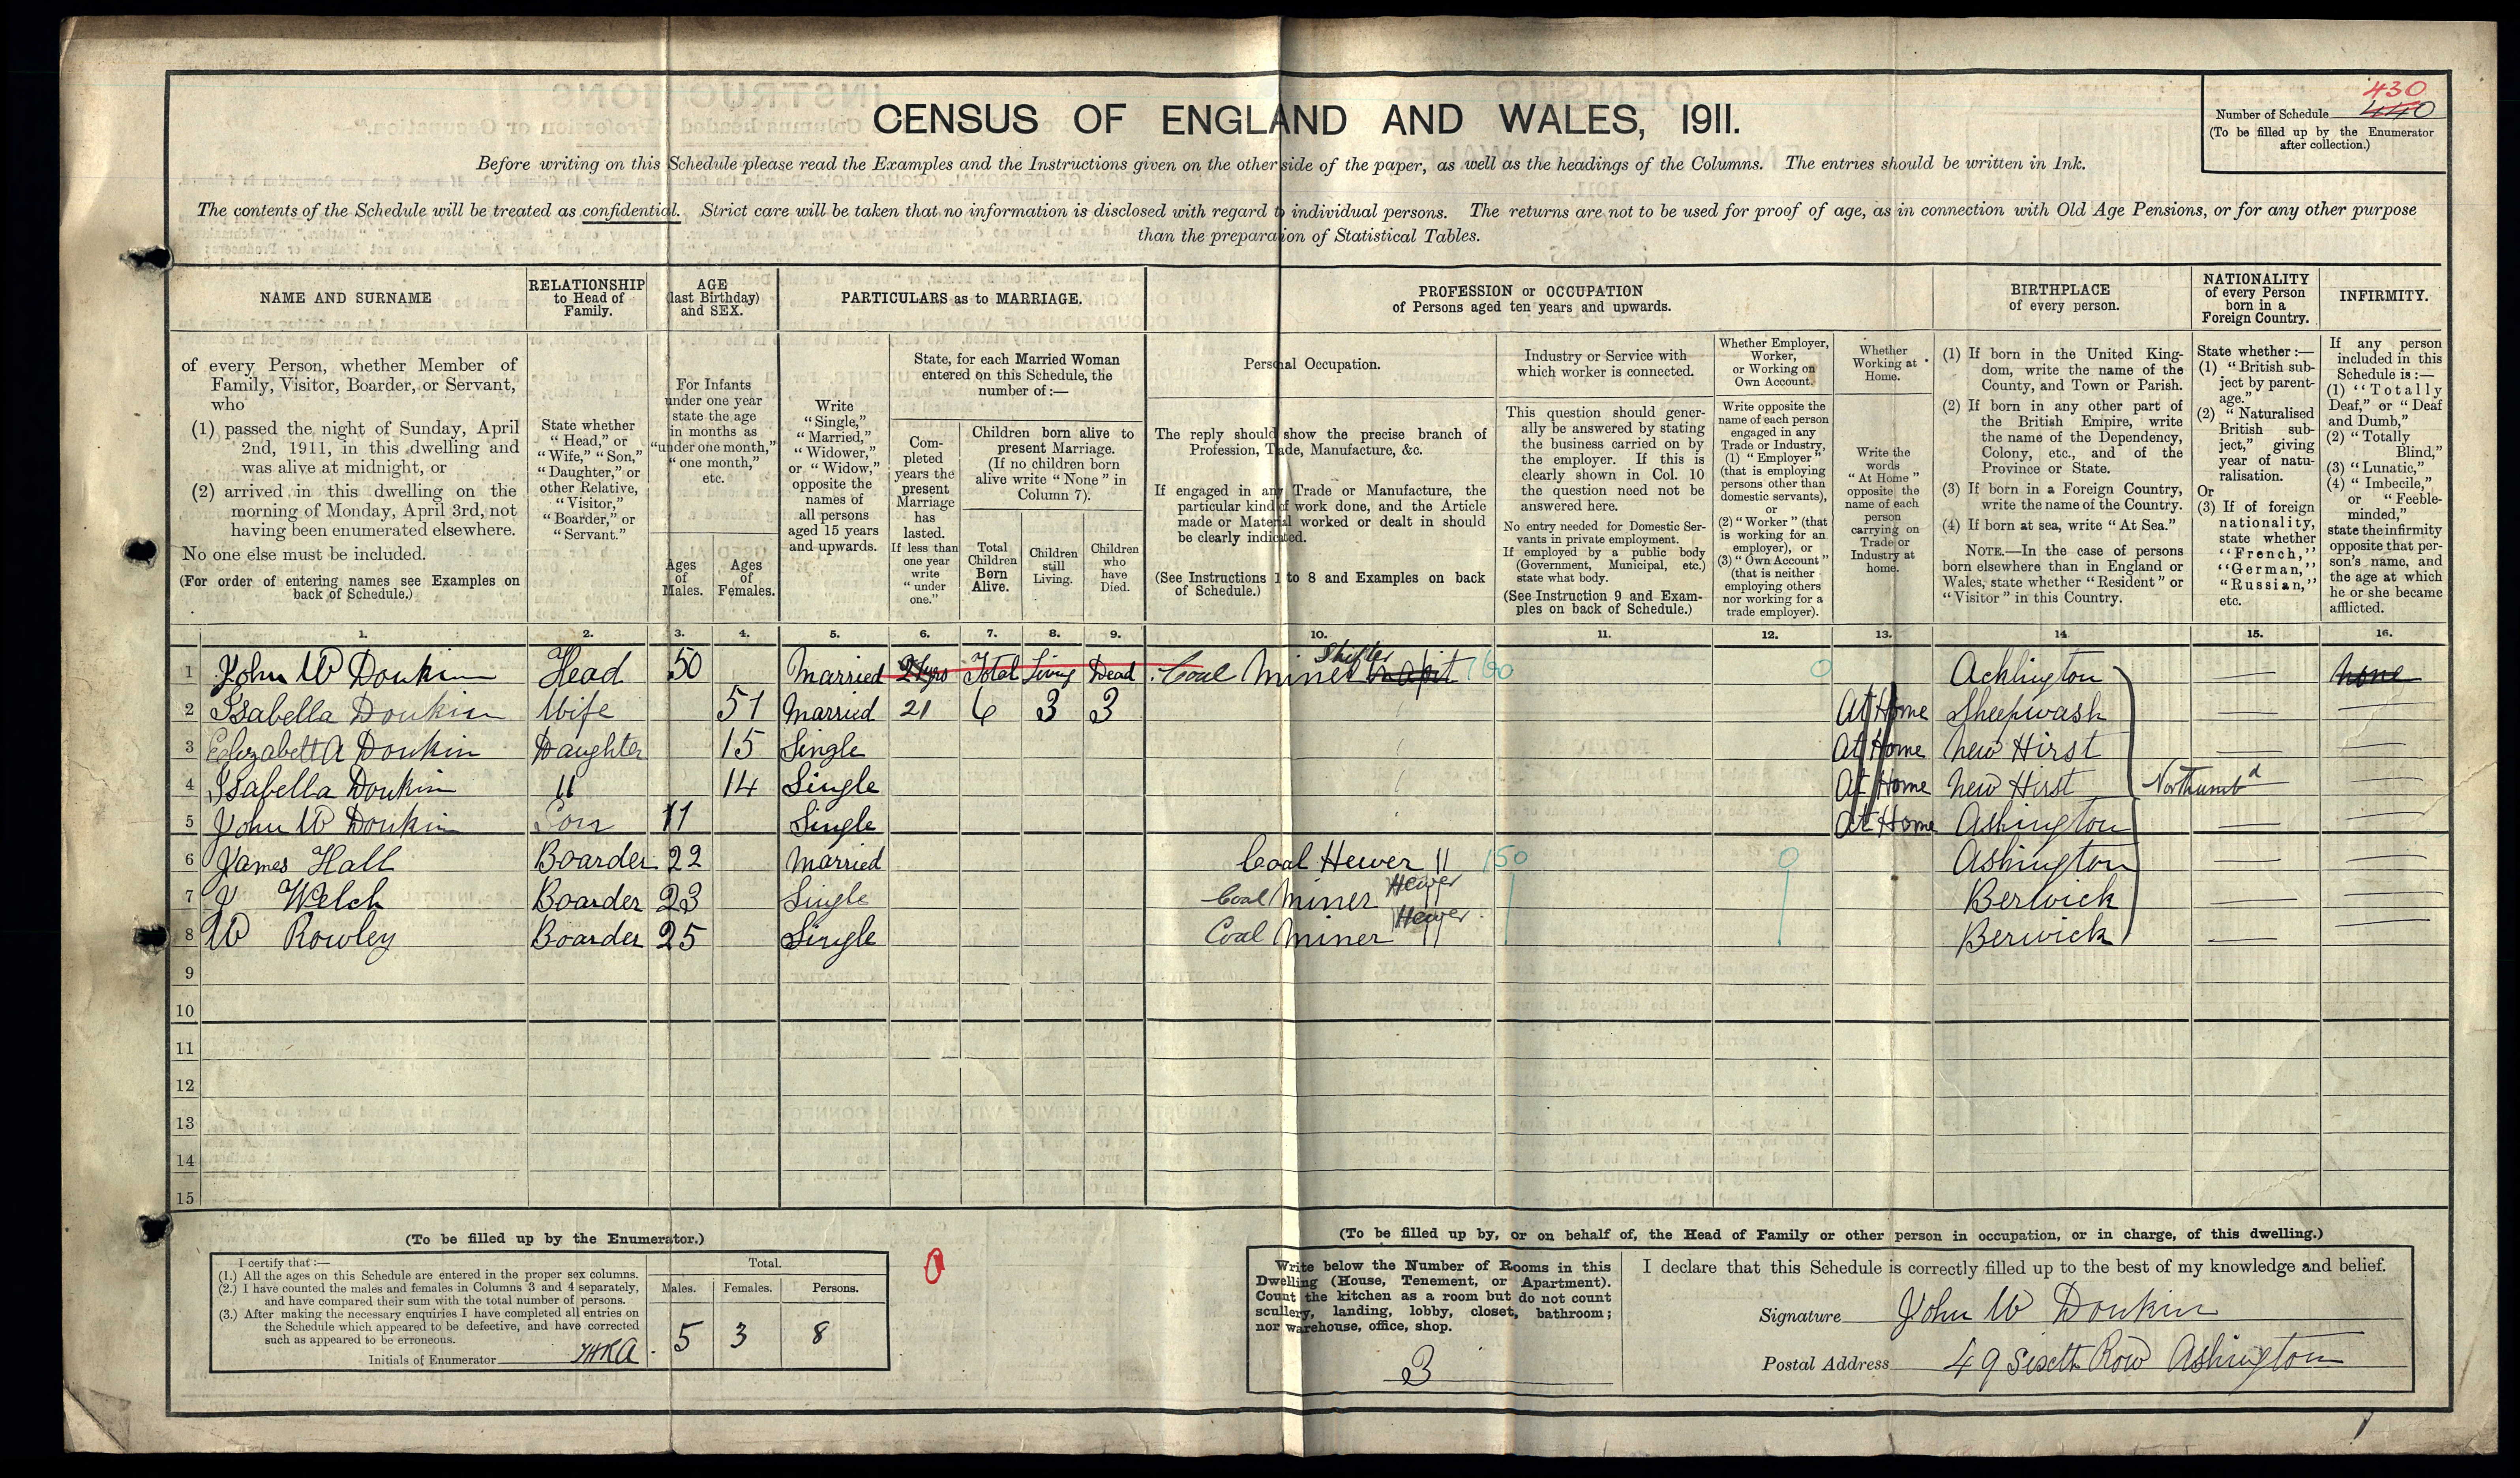 CENSUS OF ENGLAND AND WALES, 1911.
430
Number of Schedule 440
(To be filled up by the Enumerator
after collection.)
Before writing on this Schedule please read the Examples and the Instructions given on the other side of the paper, as well as the headings of the Columns. The entries should be written in Ink.
The contents of the Schedule will be treated as confidential. Strict care will be taken that no information is disclosed with regard to individual persons. The returns are not to be used for proof of age, as in connection with Old Age Pensions, or for any other purpose
than the preparation of Statistical Tables.
NAME AND SURNAME
of every Person, whether Member of
Family, Visitor, Boarder, or Servant,
who
(1) passed the night of Sunday, April
2nd, 1911, in this dwelling and
was alive at midnight, or
(2) arrived in this dwelling on the
morning of Monday, April 3rd, not
having been enumerated elsewhere.
No one else must be included.
(For order of entering names see Examples on
back of Schedule.)
RELATIONSHIP
to Head of
Family.
State whether
"Head," or
"Wife," "Son,"
"Daughter," or
other Relative,
"Visitor,"
"Boarder," or
"Servant."
AGE
(last Birthday)
and SEX.
For Infants
under one year
state the age
in months as
"under one month,"
"one month,"
etc.
Ages
of
Males.
Ages
of
Females.
PARTICULARS as to MARRIAGE.
Write
"Single,"
"Married,"
"Widower,"
or "Widow,"
opposite the
names of
all persons
aged 15 years
and upwards.
State, for each Married Woman
entered on this Schedule, the
number of:—
Com-
pleted
years the
present
Marriage
has
lasted.
If less than
one year
write
"under
one."
Children born alive to
present Marriage.
(If no children born
alive write "None" in
Column 7).
Total
Children
Born
Alive.
Children
still
Living.
Children
who
have
Died.
PROFESSION or OCCUPATION
of Persons aged ten years and upwards.
Personal Occupation.
The reply should show the precise branch of
Profession, Trade, Manufacture, &c.
If engaged in any Trade or Manufacture, the
particular kind of work done, and the Article
made or Material worked or dealt in should
be clearly indicated.
(See Instructions 1 to 8 and Examples on back
of Schedule.)
Industry or Service with
which worker is connected.
This question should gener-
ally be answered by stating
the business carried on by
the employer. If this is
clearly shown in Col. 10
the question need not be
answered here.
No entry needed for Domestic Ser-
vants in private employment.
If employed by a public body
(Government, Municipal, etc.)
state what body.
(See Instruction 9 and Exam-
ples on back of Schedule.)
Whether Employer,
Worker,
or Working on
Own Account.
Write opposite the
name of each person
engaged in any
Trade or Industry,
(1) "Employer"
(that is employing
persons other than
domestic servants),
or
(2) "Worker" (that
is working for an
employer), or
(3) "Own Account"
(that is neither
employing others
nor working for a
trade employer).
Whether
Working at
Home.
Write the
words
"At Home"
opposite the
name of each
person
carrying on
Trade or
Industry at
home.
BIRTHPLACE
of every person.
(1) If born in the United King-
dom, write the name of the
County, and Town or Parish.
(2) If born in any other part of
the British Empire, write
the name of the Dependency,
Colony, etc., and of the
Province or State.
(3) If born in a Foreign Country,
write the name of the Country.
(4) If born at sea, write "At Sea."
NOTE.—In the case of persons
born elsewhere than in England or
Wales, state whether "Resident" or
"Visitor" in this Country.
NATIONALITY
of every Person
born in a
Foreign Country.
State whether :—
(1) "British sub-
ject by parent-
age."
(2) "Naturalised
British sub-
ject," giving
year of natu-
ralisation.
Or
(3) If of foreign
nationality,
state whether
"French,"
"German,"
"Russian,"
etc.
INFIRMITY.
If any person
included in this
Schedule is:—
(1) "Totally
Deaf," or "Deaf
and Dumb,"
(2) "Totally
Blind,"
(3) "Lunatic,"
(4) "Imbecile,"
or "Feeble-
minded,"
state the infirmity
opposite that per-
son's name, and
the age at which
he or she became
afflicted.
1. 2. 3. 4. 5. 6. 7. 8. 9. 10. 11. 12. 13. 14. 15. 16.
Shifter
1 John W Donkin Head 50 Married 21yrs Total Living Dead Coal Miner in a pit 0 Acklington — none
2 Isabella Donkin Wife 51 Married 21 6 3 3 At Home Sheepwash —
3 Elizabett A Donkin Daughter 15 Single At Home New Hirst —
4 Isabella Donkin 11 14 Single At Home New Hirst Northumbd
5 John W Donkin Son 11 Single At Home Ashington —
6 James Hall Boarder 22 Married Coal Hewer 11 150 0 Ashington —
7 J Welch Boarder 23 Single Coal Miner Hewer 11 Berwick —
8 W Rowley Boarder 25 Single Coal Miner Hewer 11 Berwick —
9
10
11
12
13
14
15
(To be filled up by the Enumerator.)
I certify that:—
(1.) All the ages on this Schedule are entered in the proper sex columns.
(2.) I have counted the males and females in Columns 3 and 4 separately,
and have compared their sum with the total number of persons.
(3.) After making the necessary enquiries I have completed all entries on
the Schedule which appeared to be defective, and have corrected
such as appeared to be erroneous.
Initials of Enumerator
Total.
Males. Females. Persons.
5 3 8
0
(To be filled up by, or on behalf of, the Head of Family or other person in occupation, or in charge, of this dwelling.)
Write below the Number of Rooms in this
Dwelling (House, Tenement, or Apartment).
Count the kitchen as a room but do not count
scullery, landing, lobby, closet, bathroom;
nor warehouse, office, shop.
3
I declare that this Schedule is correctly filled up to the best of my knowledge and belief.
Signature John W Donkin
Postal Address 49 Sixeth Row Ashington